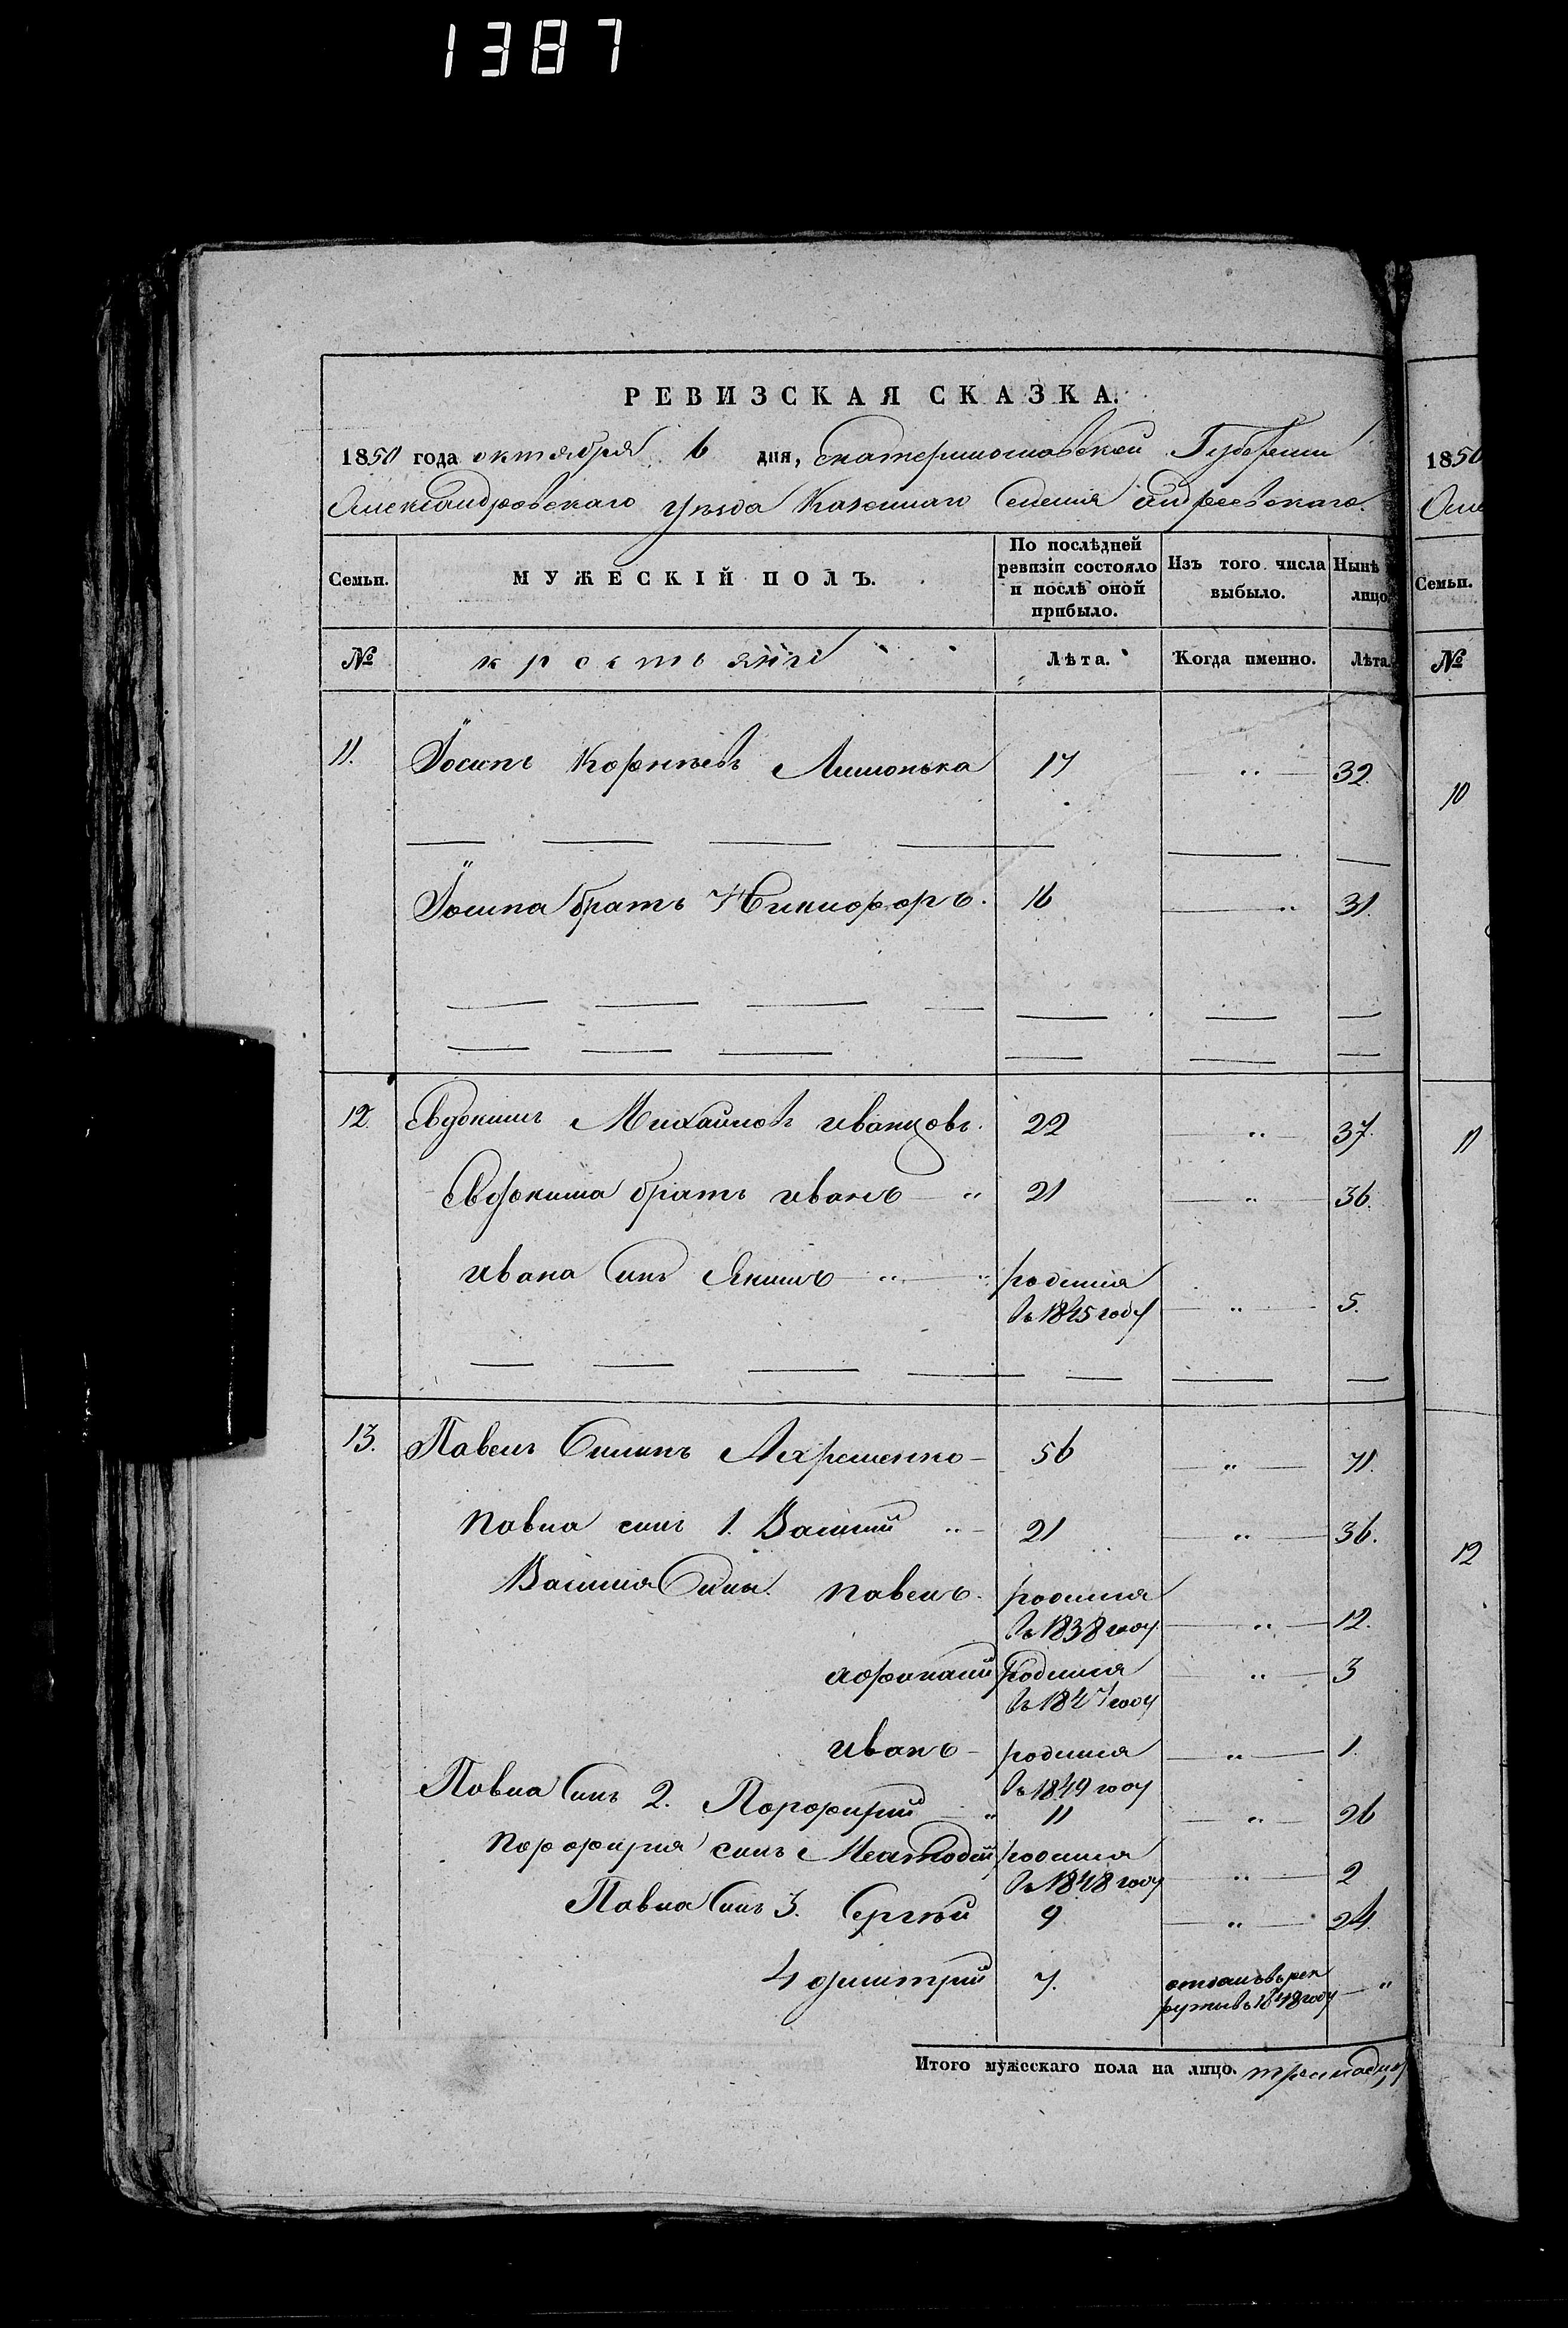 1387
РЕВИЗСКАЯ СКАЗКА.
1850 года октября 6 дня, Екатеринославской Губернии
Александровскаго уѣзда Казеннаго Селенія Андреевскаго.
Семьи. МУЖЕСКІЙ ПОЛЪ. По послѣдней ревизіи состояло и послѣ оной прибыло. Изъ того числа выбыло. Нынѣ лицо
№ крестьяне Лѣта. Когда именно. Лѣта.
11. Іосипъ Корнѣевъ Лимонька 17 „ 32.
Іосипа братъ Никифоръ. 16 „ 31.
12. Евдокимъ Михайловъ Иванцовъ. 22 „ 37.
Евдокима братъ Иванъ „ 21 „ 36.
Ивана Синъ Якимъ „ „ родился
въ 1845 году „ 5.
13. Павелъ Силинъ Ахременко 56 „ 71.
Павла синъ 1. Василий „ 21 „ 36.
Василия Сины. Павелъ. родился
въ 1838 году „ 12.
Афанасий родился „ 3
въ 1847 году
Иванъ родился „ 1.
въ 1849 году
Павла Синъ 2. Порфирий „ 11 „ 26
Порфирия синъ Меөтодий родился
въ 1848 году „ 2
Павла Синъ 3. Сергѣй 9 „ 24.
4 Дмитрий 7. отданъ въ рек
руты въ 1848 году „
Итого мужескаго пола на лицо.
1850
Семьи.
№
10
11
12